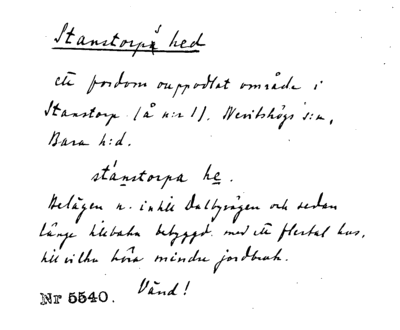 Stanstorps hed
ett fordom ouppodlat område i
Stanstorp (å n:r 1). Nevitshögs s:n,
Bara h:d.
stánstorpa he.
Belägen n. intill Dalbyvägen och sedan
länge tillbaka bebyggd med ett flertal hus,
till vilka höra mindre jordbruk.
Nr 5540. Vänd!